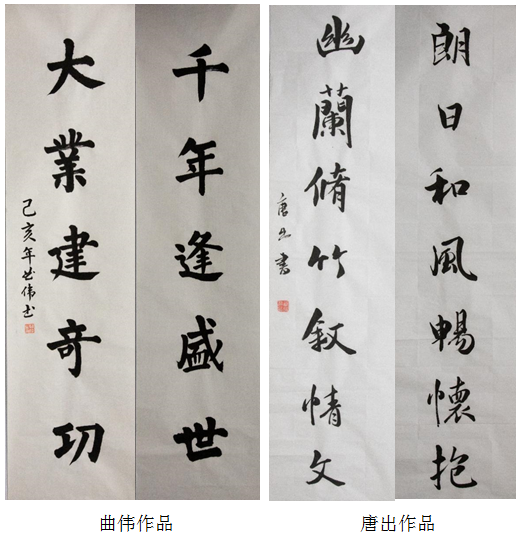 千年逢盛世
大業建奇功
己亥年曲伟书
朗日和風暢懷抱
幽蘭脩竹叙情文
唐出書
曲伟作品
唐出作品